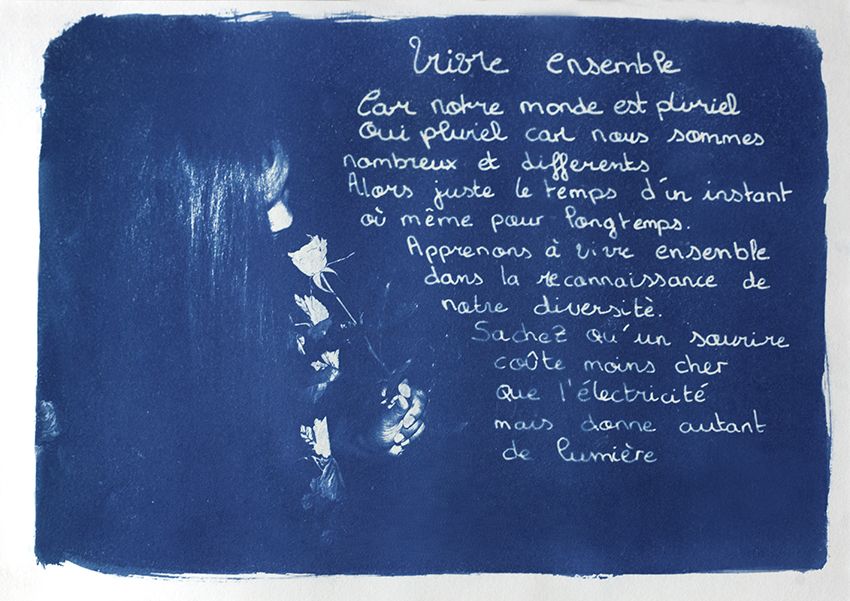 Vivre ensemble
Car notre monde est pluriel
Oui pluriel car nous sommes
nombreux et differents
Alors juste le temps d'un instant
où même pour longtemps.
Apprenons à vivre ensenble
dans la reconnaissance de
notre diversitè.
Sachez qu'un sourire
coûte moins cher
que l'électricité
mais donne autant
de lumière